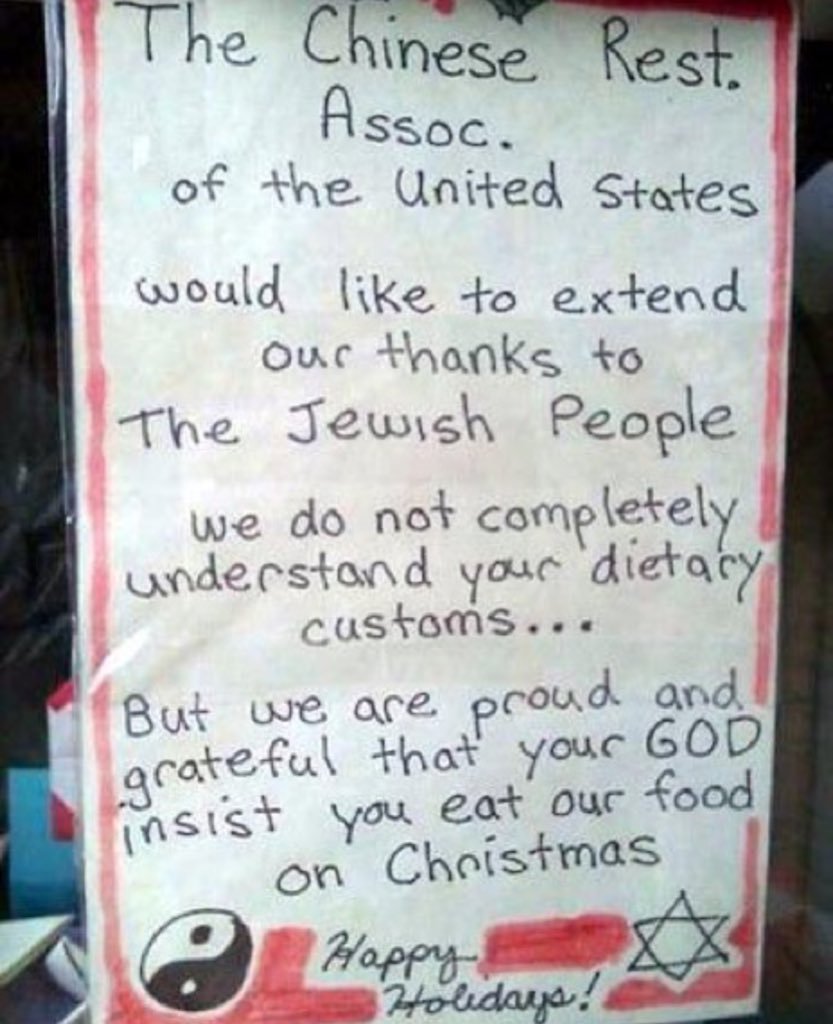 The Chinese Rest.
Assoc.
of the United States
would like to extend
our thanks to
The Jewish People
we do not completely
understand your dietary
customs...
But we are proud and
grateful that your GOD
insist you eat our food
on Christmas
Happy
Holidays!